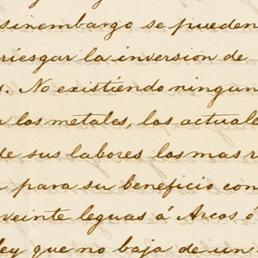 sinembargo se pueden
riesgar la inversion de
. No existiendo ningun
los metales, los actuale
de sus labores los mas r
para su beneficio con
veinte leguas á Arcos ó
ley que no baja de un